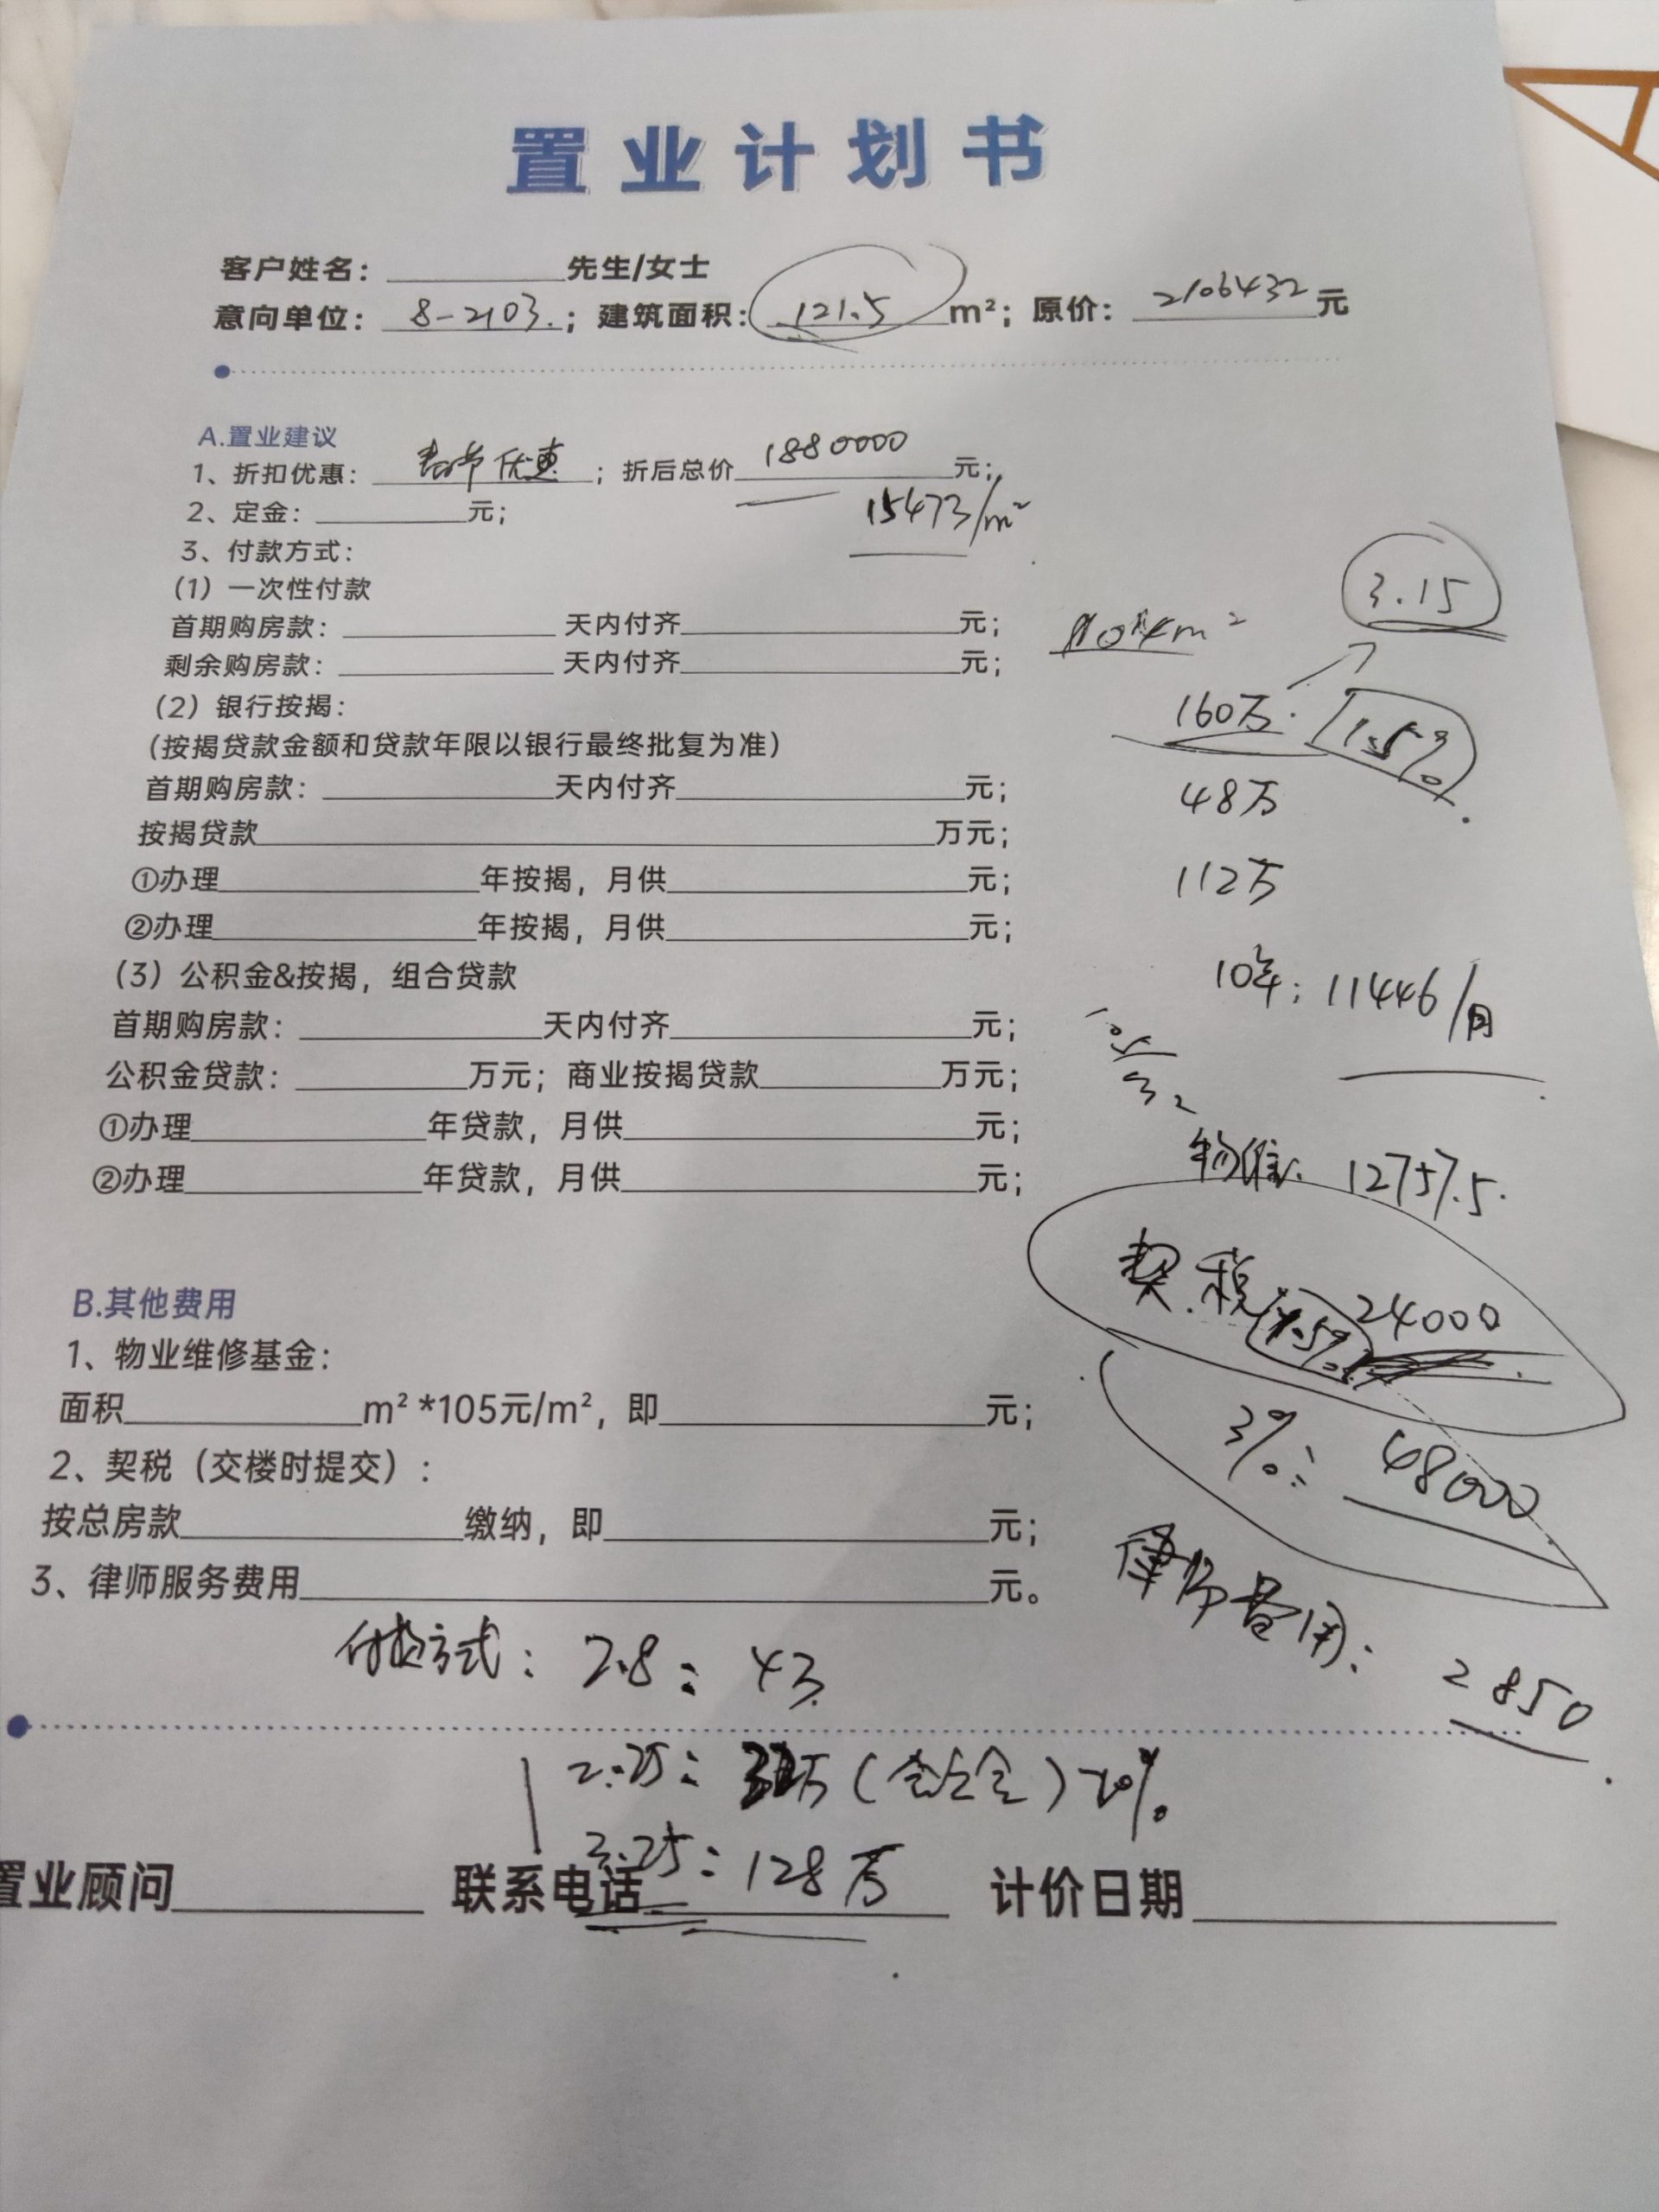 置业计划书
客户姓名：________先生/女士
意向单位：8-2103.；建筑面积：121.5 m²；原价：2106432元
A.置业建议
1、折扣优惠：春节优惠；折后总价1880000元；
15473/m²
2、定金：________元；
3、付款方式：
（1）一次性付款
首期购房款：________天内付齐________元；
剩余购房款：________天内付齐________元；
（2）银行按揭：
（按揭贷款金额和贷款年限以银行最终批复为准）
首期购房款：________天内付齐________元；
按揭贷款________万元；
①办理________年按揭，月供________元；
②办理________年按揭，月供________元；
（3）公积金&按揭，组合贷款
首期购房款：________天内付齐________元；
公积金贷款：________万元；商业按揭贷款________万元；
①办理________年贷款，月供________元；
②办理________年贷款，月供________元；
3.15
160万. 1.5%
48万
112万
10年：11446/月
物维：12757.5.
契税 1.5% 24000
3%：48000
律师费用：2850
B.其他费用
1、物业维修基金：
面积________m²*105元/m²，即________元；
2、契税（交楼时提交）：
按总房款________缴纳，即________元；
3、律师服务费用________元。
付款方式：2.8：43
2.25：32万（含定金）20%
3.25：128万
置业顾问________ 联系电话________ 计价日期________